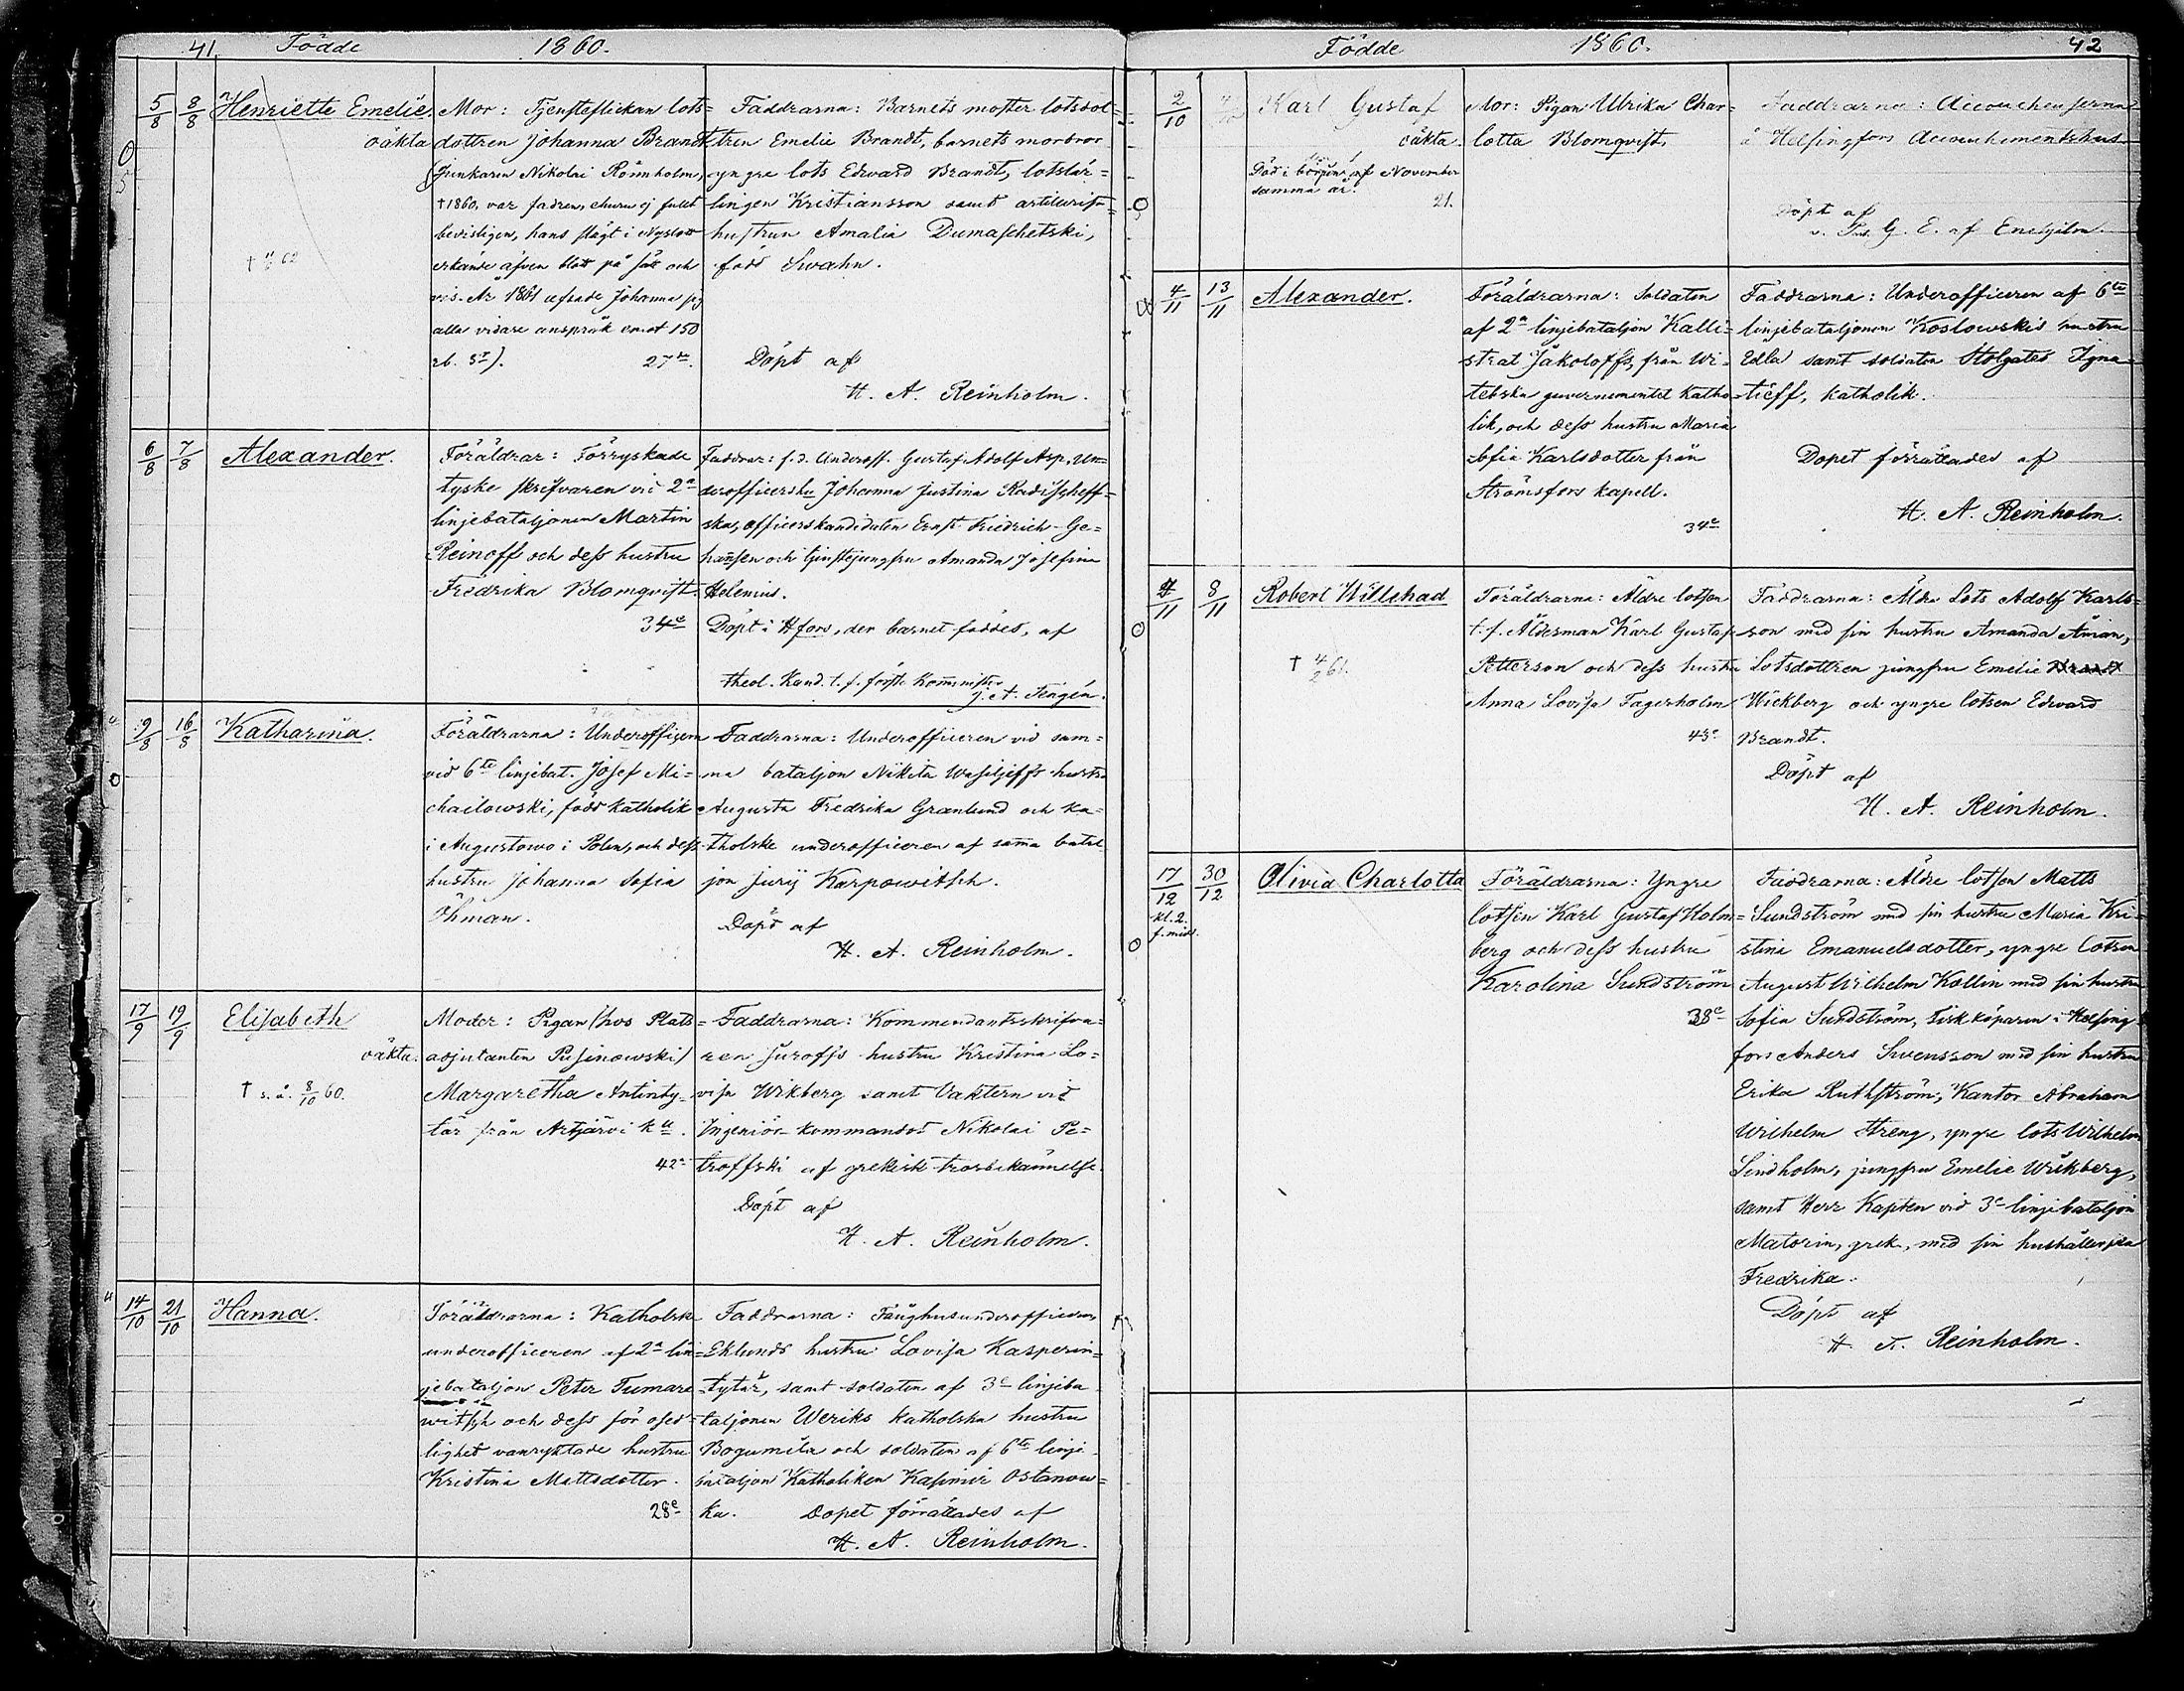 41. Födde 1860.
5/8 8/8 Henriette Emelie.
oäkta
Mor: Tjensteflickan lots=
dottren Johanna Brandt
(Junkaren Nikolai Rönnholm,
†1860, var fadren, ehuru ej fullt
bevisligen, hans slägt i Nyslott
erkände äfven blott på sätt och
vis. År 1861 afsade Johanna sig
alla vidare anspråk emot 150
rb. Sr).
27de.
Faddrarna: Barnets moster lotsdot=
tren Emelie Brandt, barnets morbror
yngre lots Edward Brandt, lotslär=
lingen Kristiansson samt artillerist=
hustrun Amalia Dumaschetski,
född Swahn.
Döpt af
H. A. Reinholm.
6/8 7/8 Alexander.
Föräldrar: Förryskade
tyske skrifvaren vid 2a
linjebataljonen Martin
Reinoff och dess hustru
Fredrika Blomqvist.
34e
Faddrar: f.d. Underoff. Gustaf Adolf Asp, Un=
derofficerska Johanna Justina
ska, officerskandidaten Ernst Friedrich Ge=
hanssen och tjenstejungfru Amanda Josefina
Helenius.
Döpt i Hfors, der barnet föddes, af
Theol. Kand. t. f. förste Kommister
J. A. Tengén.
9/8 16/8 Katharina.
Föräldrarna: Underofficern
vid 6te linjebat. Josef Mi=
chailowski, född katholik
i Augustowo i Polen, och dess
hustru Johanna Sofia
Öhman.
Faddrarna: Underofficeren vid sam=
ma bataljon Nikita Wasiljeffs hustru
Augusta Fredrika Granlund och ka=
tholske underofficeren af samma batal
jon Jurij Karpowitsch.
Döpt af
H. A. Reinholm.
17/9 19/9 Elisabeth
oäkta.
† s. å. 8/10 60.
Moder: Pigan (hos Plats=
adjutanten Pusinowski)
Margaretha Antinty=
tär från Artjärvi kll.
42a
Faddrarna: Kommendantsskrifva=
ren Juroffs hustru Kristina Lo=
visa Wikberg samt Vaktern vid
Ingeniör-kommandot Nikolai Pe=
troffski af grekisk trosbekännelse.
Döpt af
H. A. Reinholm.
14/10 21/10 Hanna.
Föräldrarna: Katholske
underofficeren af 2a lin=
jebataljon Peter Tumare
witsch och dess för osed=
lighet vanryktade hustru
Kristina Mattsdotter.
28e
Faddrarna: Tyghusunderofficern
Eklunds hustru Lovisa Kasperin=
tytär, samt soldaten af 3e linjeba
taljonen Weriks katholska hustru
Bogumila och soldaten af 6te linje
bataljon Katholiken Kasimir Ostanow=
ka. Dopet förrättades af
H. A. Reinholm.
Födde 1860. 42
2/10 Karl Gustaf
oäkta.
Död i början af November
samma år.
21.
Mor: Pigan Ulrika Char=
lotta Blomqvist.
Faddrarna: Accoucheuserna
å Helsingfors Accouchementshus.
Döpt af
v. Past. G. E. af Enehjelm.
4/11 13/11 Alexander.
Föräldrarna: Soldaten
af 2a linjebataljon Kalli=
strat Jakoloffs, från Wi=
tebska guvernementet Katho=
lik, och dess hustru Maria
Sofia Karlsdotter från
Strömsfors kapell.
34e
Faddrarna: Underofficeren af 6te
linjebataljonen Koslowskis hustru
Edla samt soldaten Stolgates Igna=
tieff, katholik.
Dopet förrättades af
H. A. Reinholm.
4/11 8/11 Robert Willehad
† 4/2 61.
Föräldrarna: Äldre lotsen
t.f. Åldesman Karl Gustaf
Petterson och dess hustru
Anna Lovisa Fagerholm
43e
Faddrarna: Äldre Lots Adolf Karls=
son med sin hustru Amanda Åman,
Lotsdottren jungfru Emelie Brandt
Wickberg och yngre lotsen Edward
Brandt.
Döpt af
H. A. Reinholm.
17/12 30/12 Olivia Charlotta
kl. 2.
f. midd.
Föräldrarna: Yngre
lotsen Karl Gustaf Holm=
berg och dess hustru
Karolina Sundström
38e
Faddrarna: Äldre lotsen Matts
Sundström med sin hustru Maria Kri=
stina Emanuelsdotter, yngre lotsen
August Wilhelm Kollin med sin hustru
Sofia Sundström, Fisk köparen i Helsing=
fors Anders Swensson med sin hustru
Erika Ruthström, Kantor Abraham
Wilhelm Streng, yngre lots Wilhelm
Lindholm, jungfru Emelie Wikberg,
samt Herr Kapten vid 3e linjebataljon
Matorin, grek, med sin hushållerska
Fredrika.
Döpt af
H. A. Reinholm.